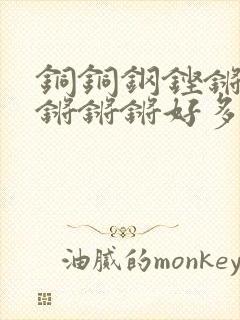 銅銅鋼鏗鏘
鏘鏘鏘好多
油膩的monkey